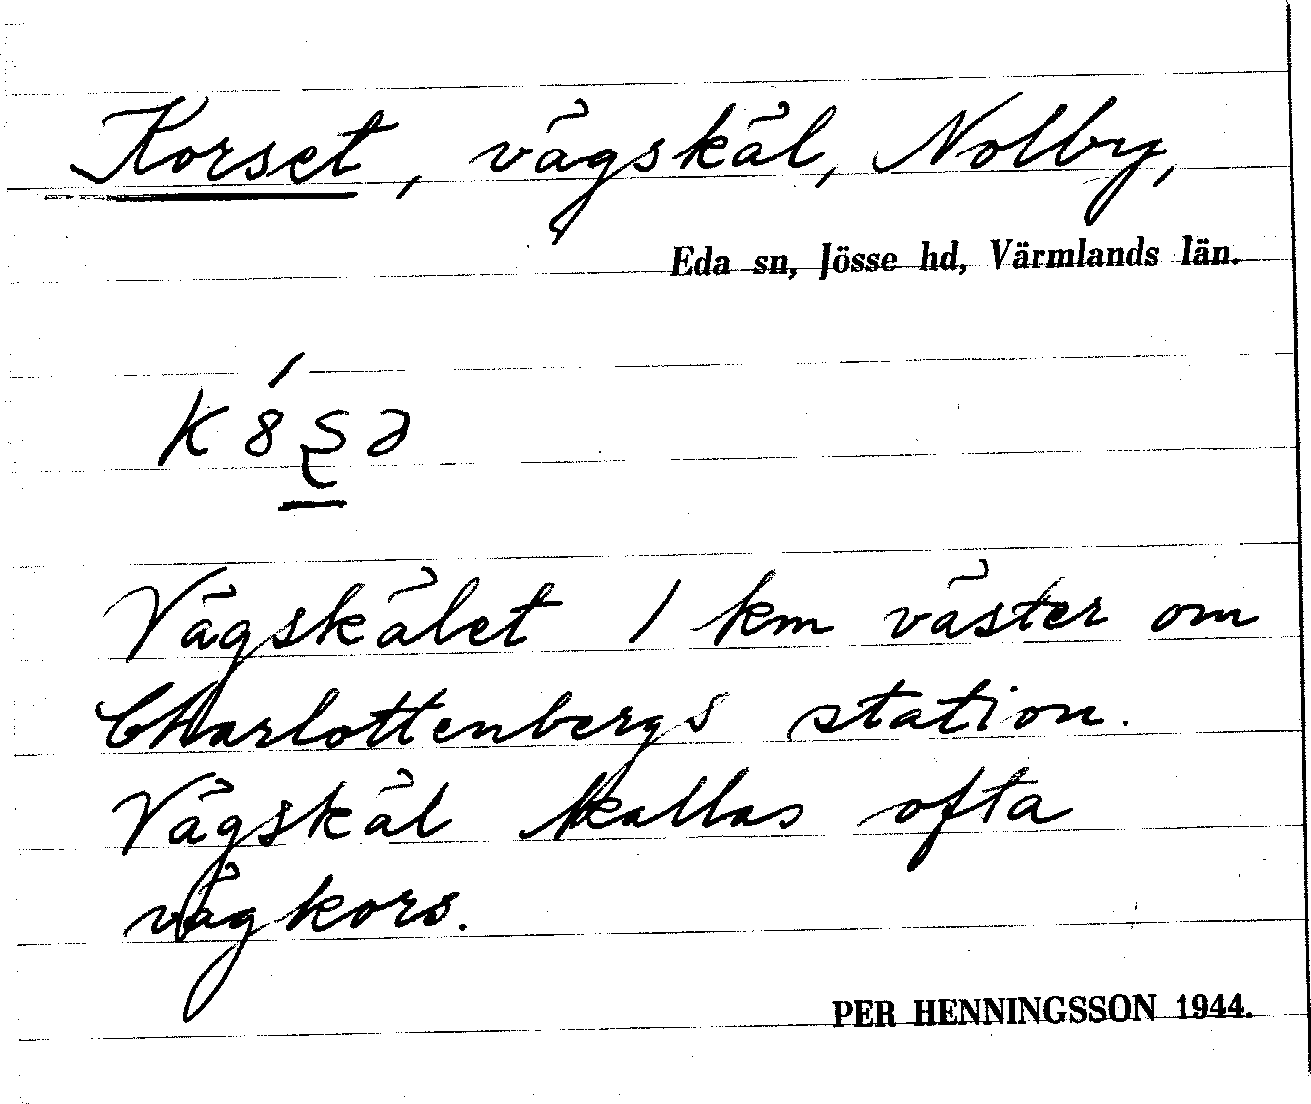 Korset, vägskäl, Nolby,
Eda sn, Jösse hd, Värmlands län.
Vägskälet 1 km väster om
Charlottenbergs station.
Vägskäl kallas ofta
vägkors.
PER HENNINGSSON 1944.